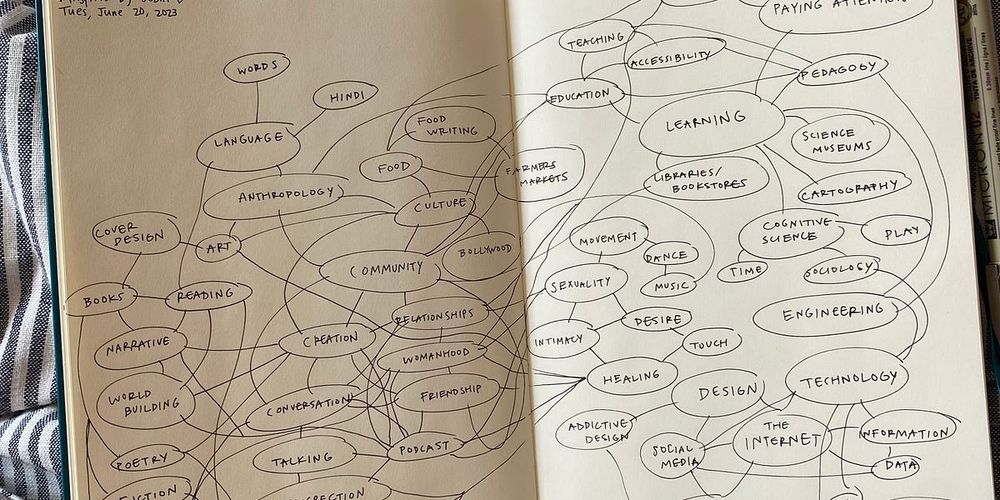 Tues, June 20, 2023
WORDS
HINDI
LANGUAGE
FOOD
WRITING
FOOD
ANTHROPOLOGY
CULTURE
COVER
DESIGN
ART
BOLLYWOOD
COMMUNITY
BOOKS
READING
RELATIONSHIPS
NARRATIVE
CREATION
WOMANHOOD
WORLD
BUILDING
CONVERSATION
FRIENDSHIP
POETRY
TALKING
PODCAST
FICTION
PAYING ATTENTION
TEACHING
ACCESSIBILITY
PEDAGOGY
EDUCATION
LEARNING
SCIENCE
MUSEUMS
FARMERS
MARKETS
LIBRARIES/
BOOKSTORES
CARTOGRAPHY
MOVEMENT
COGNITIVE
SCIENCE
PLAY
DANCE
TIME
SOCIOLOGY
SEXUALITY
MUSIC
ENGINEERING
DESIRE
INTIMACY
TOUCH
HEALING
DESIGN
TECHNOLOGY
ADDICTIVE
DESIGN
THE
INTERNET
INFORMATION
SOCIAL
MEDIA
DATA
MICRON 02